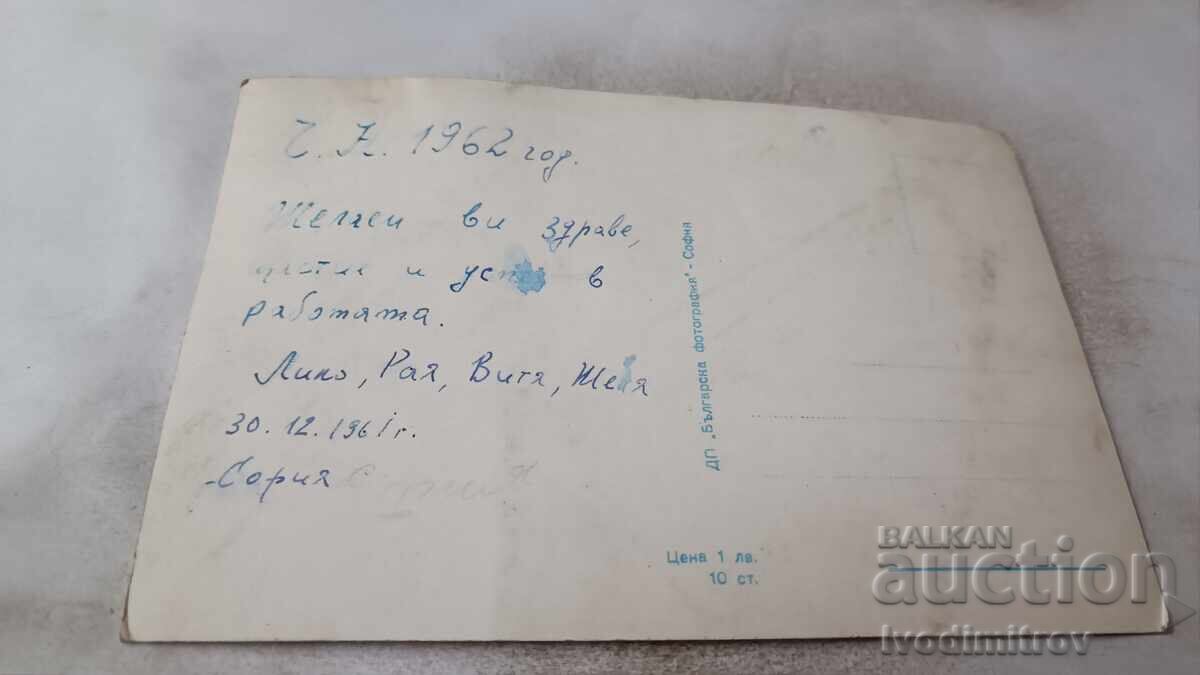 Ч. Н. 1962 год.
Желаем ви здраве,
щастие и в
работата.
Лило, Рая, Витя, Женя
30.12.1961 г.
София
ДП „Българска фотография" - София
Цена 1 лв.
10 ст.
BALKAN
auction
Ivodimitrov